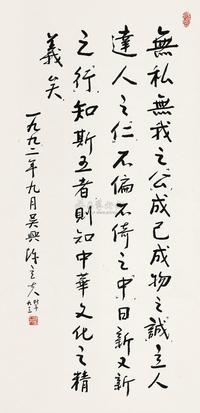 無私無我之公成己成物之誠立人
達人之仁不偏不倚之中日新又新
之行知斯五者則知中華文化之精
義矣
一九九二年九月吳興陳立夫時年九三